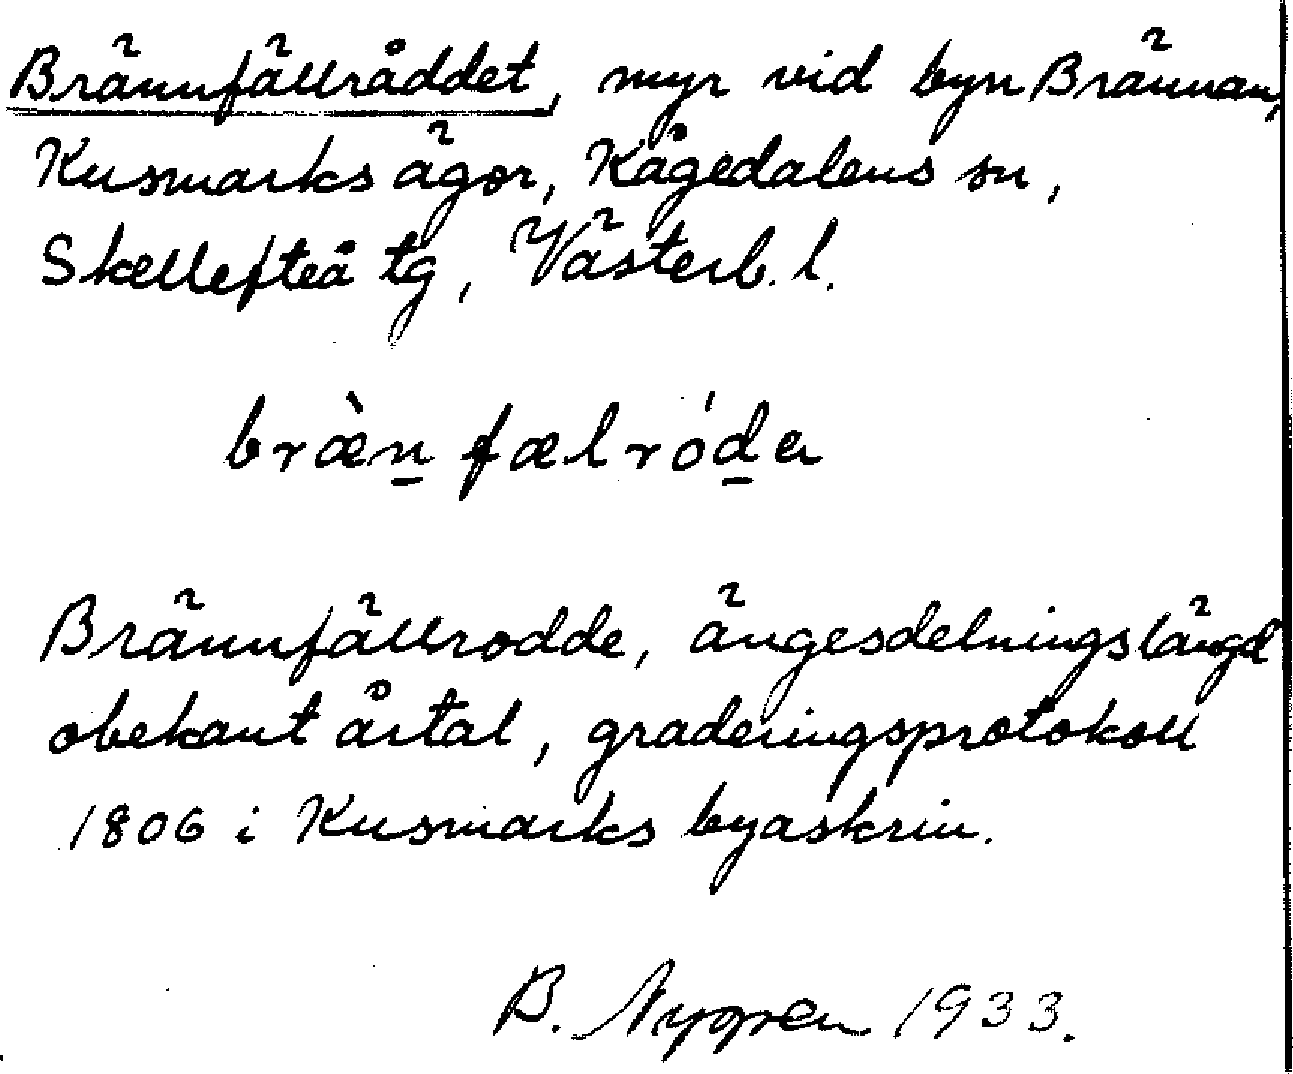 Brännfällråddet, myr vid byn Brännan,
Kusmarks ägor, Kågedalens sn,
Skellefteå tg, Västerb. l.
bræ̀n̲ fælród̲ɐ
Brännfällrodde, ängesdelningslängd
obekant årtal, graderingsprotokoll
1806 i Kusmarks byaskrin.
B. Nygren 1933.